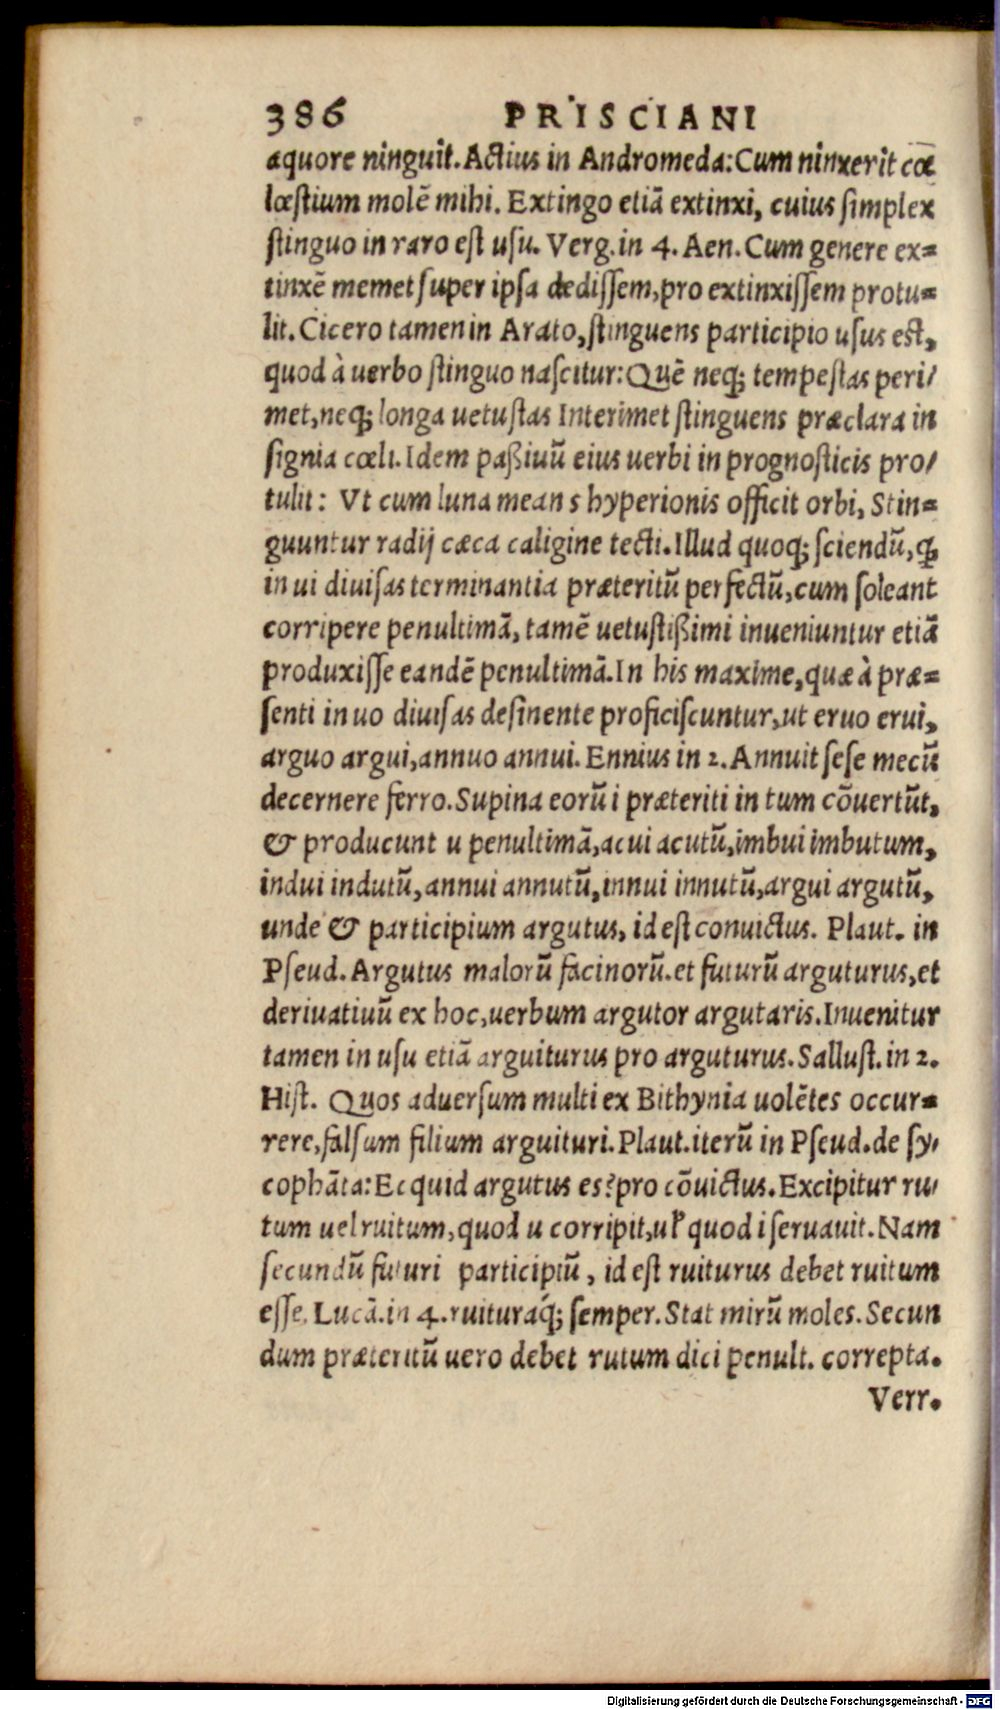 386 PRISCIANI
aquore ninguit. Actius in Andromeda: Cum ninxerit cœ
lœstium molẽ mihi. Extingo etiã extinxi, cuius simplex
stinguo in raro est usu. Verg. in 4. Aen. Cum genere ex=
tinxẽ memet super ipsa dedissem, pro extinxissem protu=
lit. Cicero tamen in Arato, stinguens participio usus est,
quod à uerbo stinguo nascitur: Quẽ neq; tempestas peri/
met, neq; longa uetustas Interimet stinguens præclara in
signia cœli. Idem paßiuũ eius uerbi in prognosticis pro/
tulit: Vt cum luna means hyperionis officit orbi, Stin=
guuntur radij cæca caligine tecti. Illud quoq; sciendũ, ꝙ
in ui diuisas terminantia præteritũ perfectũ, cum soleant
corripere penultimã, tamẽ uetustißimi inueniuntur etiã
produxisse eandẽ penultimã. In his maxime, quæ à præ=
senti in uo diuisas desinente proficiscuntur, ut eruo erui,
arguo argui, annuo annui. Ennius in 2. Annuit sese mecũ
decernere ferro. Supina eorũ i præteriti in tum cõuertũt,
& producunt u penultimã, acui acutũ, imbui imbutum,
indui indutũ, annui annutũ, innui innutũ, argui argutũ,
unde & participium argutus, id est conuictus. Plaut. in
Pseud. Argutus malorũ facinorũ. et futurũ arguturus, et
deriuatiuũ ex hoc, uerbum argutor argutaris. Inuenitur
tamen in usu etiã arguiturus pro arguturus. Sallust. in 2.
Hist. Quos aduersum multi ex Bithynia uolẽtes occur=
rere, falsum filium arguituri. Plaut. iterũ in Pseud. de sy/
cophãta: Ecquid argutus es? pro cõuictus. Excipitur ru/
tum uel ruitum, quod u corripit, uł quod i seruauit. Nam
secundũ futuri participiũ, id est ruiturus debet ruitum
esse. Lucã. in 4. ruituraq́; semper. Stat mirũ moles. Secun
dum præteritũ uero debet rutum dici penult. correpta.
Verr.
Digitalisierung gefördert durch die Deutsche Forschungsgemeinschaft - DFG